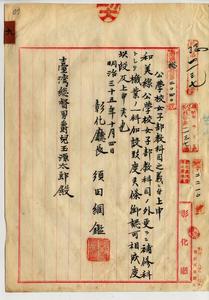 公學校女子部教科目之義ニ付上申
和美線公學校女子部教科目ノ外更ニ補修科
トシテ機業ノ一科加設致度候條御認可相成度
此段及上申候也
明治三十五年十月四日
彰化廳長 須田綱鑑
臺灣總督男爵兒玉源太郎殿
彰化廳